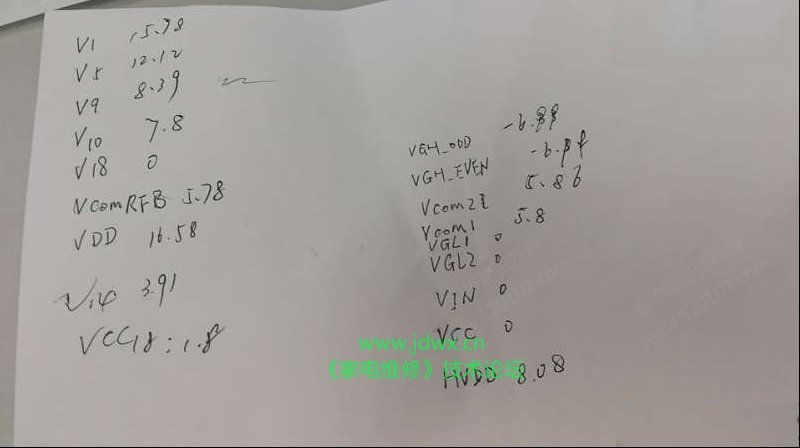 V1 15.78
V5 12.12
V9 8.39
V10 7.8
V18 0
VcomRFB 5.78
VDD 16.58
V14 3.91
VCC18:1.8
VGH_ODD
VGH_EVEN
Vcom2 5.86
Vcom1 5.8
VGL1 0
VGL2 0
VIN 0
VCC 0
HVDD 8.08
www.jdwx.cn
《家电维修》技术论坛